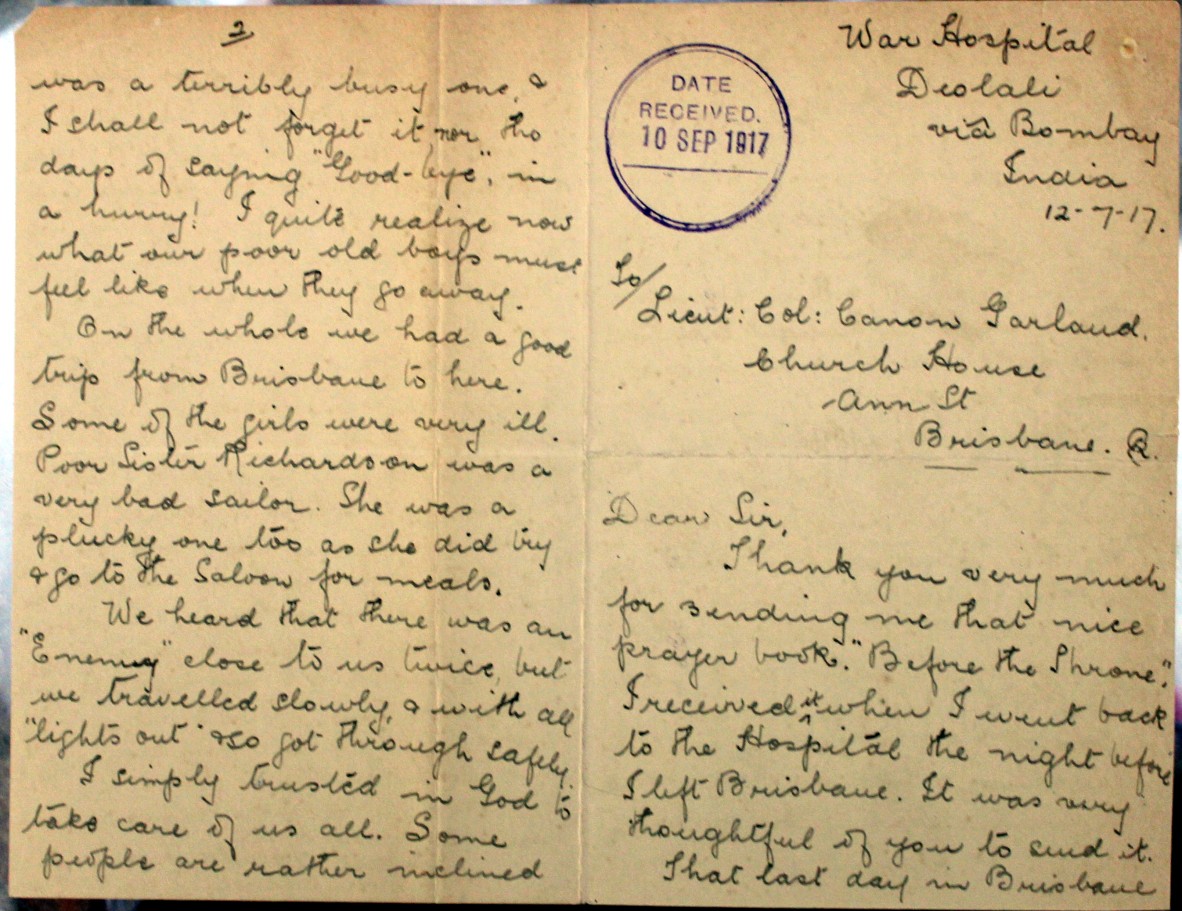 War Hospital
Deolali
viâ Bombay
India
12-7-17.
DATE
RECEIVED.
10 SEP 1917
To/
Lieut: Col: Canon Garland.
Church House
Ann St
Brisbane. Q.
Dear Sir,
Thank you very much
for sending me that nice
prayer book. "Before the Throne".
I received it when I went back
to the Hospital the night before
I left Brisbane. It was very
thoughtful of you to send it.
That last day in Brisbane
2
was a terribly busy one, &
I shall not forget it, nor the
days of saying "Good-bye", in
a hurry! I quite realize now
what our poor old boys must
feel like when they go away.
On the whole we had a good
trip from Brisbane to here.
Some of the girls were very ill.
Poor Sister Richardson was a
very bad sailor. She was a
plucky one too as she did try
& go to the Saloon for meals.
We heard that there was an
"Enemy" close to us twice, but
we travelled slowly, & with all
"lights out" & so got through safely.
I simply trusted in God to
take care of us all. Some
people are rather inclined